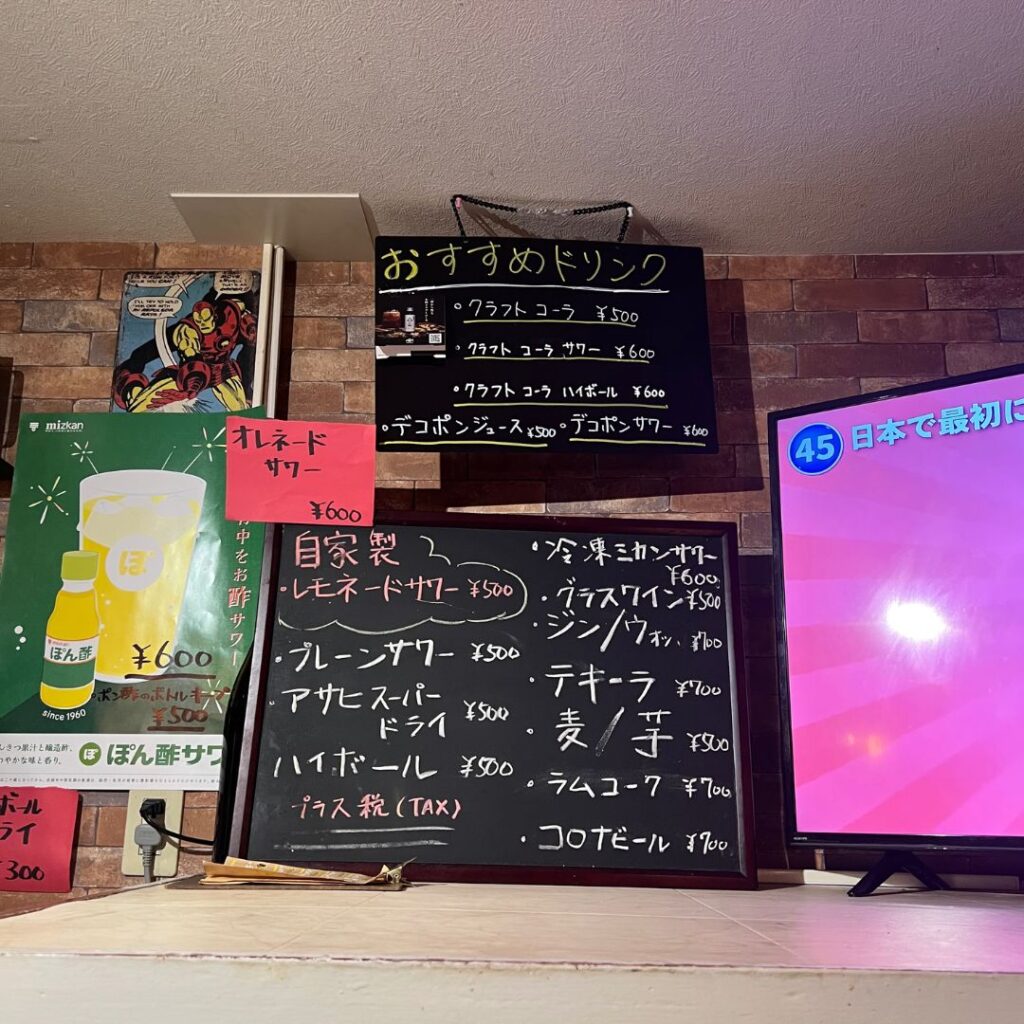 おすすめドリンク
・クラフト コーラ ¥500
・クラフト コーラ サワー ¥600
クラフト コーラ ハイボール ¥600
・デコポンジュース ¥500 ・デコポンサワー ¥600
I'LL TRY TO HOLD
mizkan
オレネード
サワー
¥600
お酢サワー
ぽ
ぽん酢
¥600
・ポン酢のボトルキープ
¥500
since 1960
ぽ ぽん酢サワ
ボール
ライ
¥300
自家製
・レモネードサワー ¥500
・プレーンサワー ¥500
・アサヒスーパー
ドライ ¥500
ハイボール ¥500
プラス税(TAX)
・冷凍ミカンサワー
¥600
・グラスワイン ¥500
・ジン/ウォッ、¥700
・テキーラ ¥700
・麦/芋 ¥500
・ラムコーク ¥700
・コロナビール ¥700
45 日本で最初に